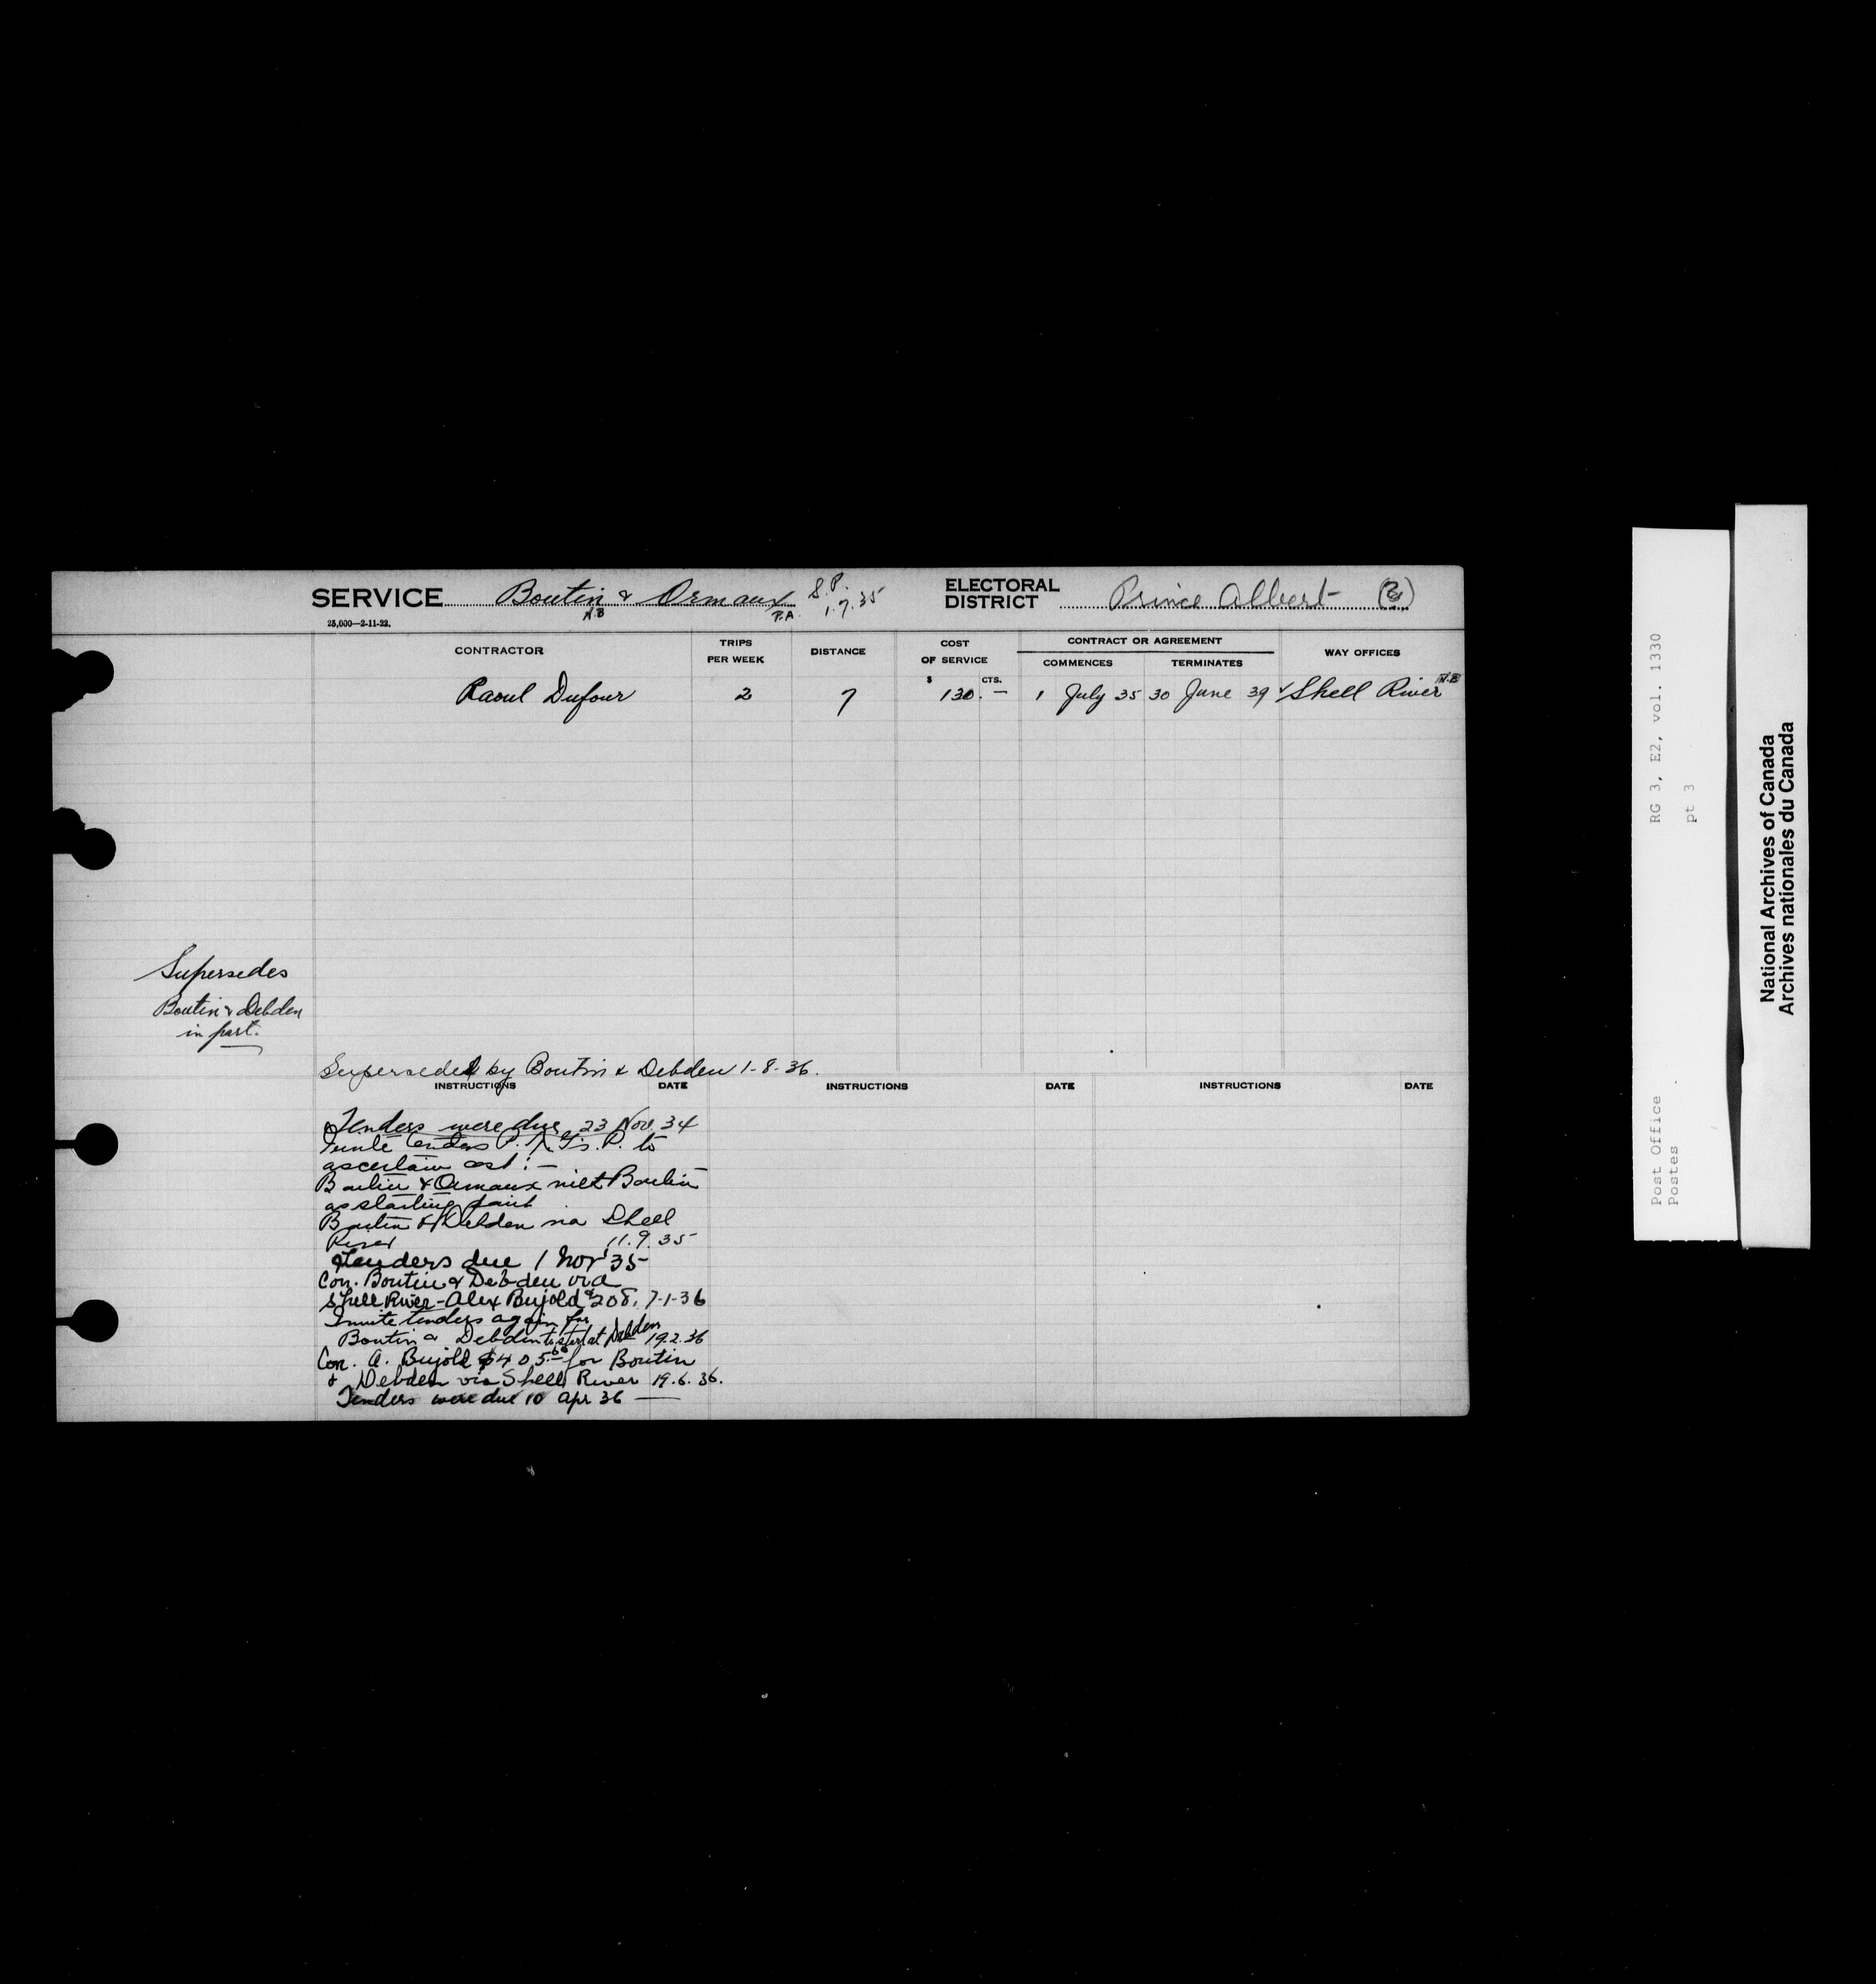 SERVICE Boutin & Ormaux S.P. 1.7.35
N.B P.A.
25,000—2-11-22.
ELECTORAL DISTRICT Prince Albert
CONTRACTOR
TRIPS PER WEEK
DISTANCE
COST OF SERVICE
$ CTS.
CONTRACT OR AGREEMENT
COMMENCES TERMINATES
WAY OFFICES
Raoul Dufour 2 7 130. — 1 July 35 30 June 39 ✓Shell River N.B
Supersedes
Boutin & Debden
in part.
Superseded by Boutin & Debden 1-8-36.
INSTRUCTIONS DATE INSTRUCTIONS DATE INSTRUCTIONS DATE
Tenders were due 23 Nov. 34
Invite tenders P. to
ascertain cost:—
Boutin & Ormaux with Boutin
as starting point
Boutin & Debden via Shell
River 11.9.35
Tenders due 1 Nov 35
Con. Boutin & Debden via
Shell River - Alex Bujold $208. 7-1-36
Invite tenders again for
Boutin & Debden to start at Debden 19.2.36
Con. A. Bujold $405.60 for Boutin
& Debden via Shell River 19.6.36.
Tenders were due 10 Apr 36 —
RG 3, E2, vol. 1330
pt 3
Post Office
Postes
National Archives of Canada
Archives nationales du Canada